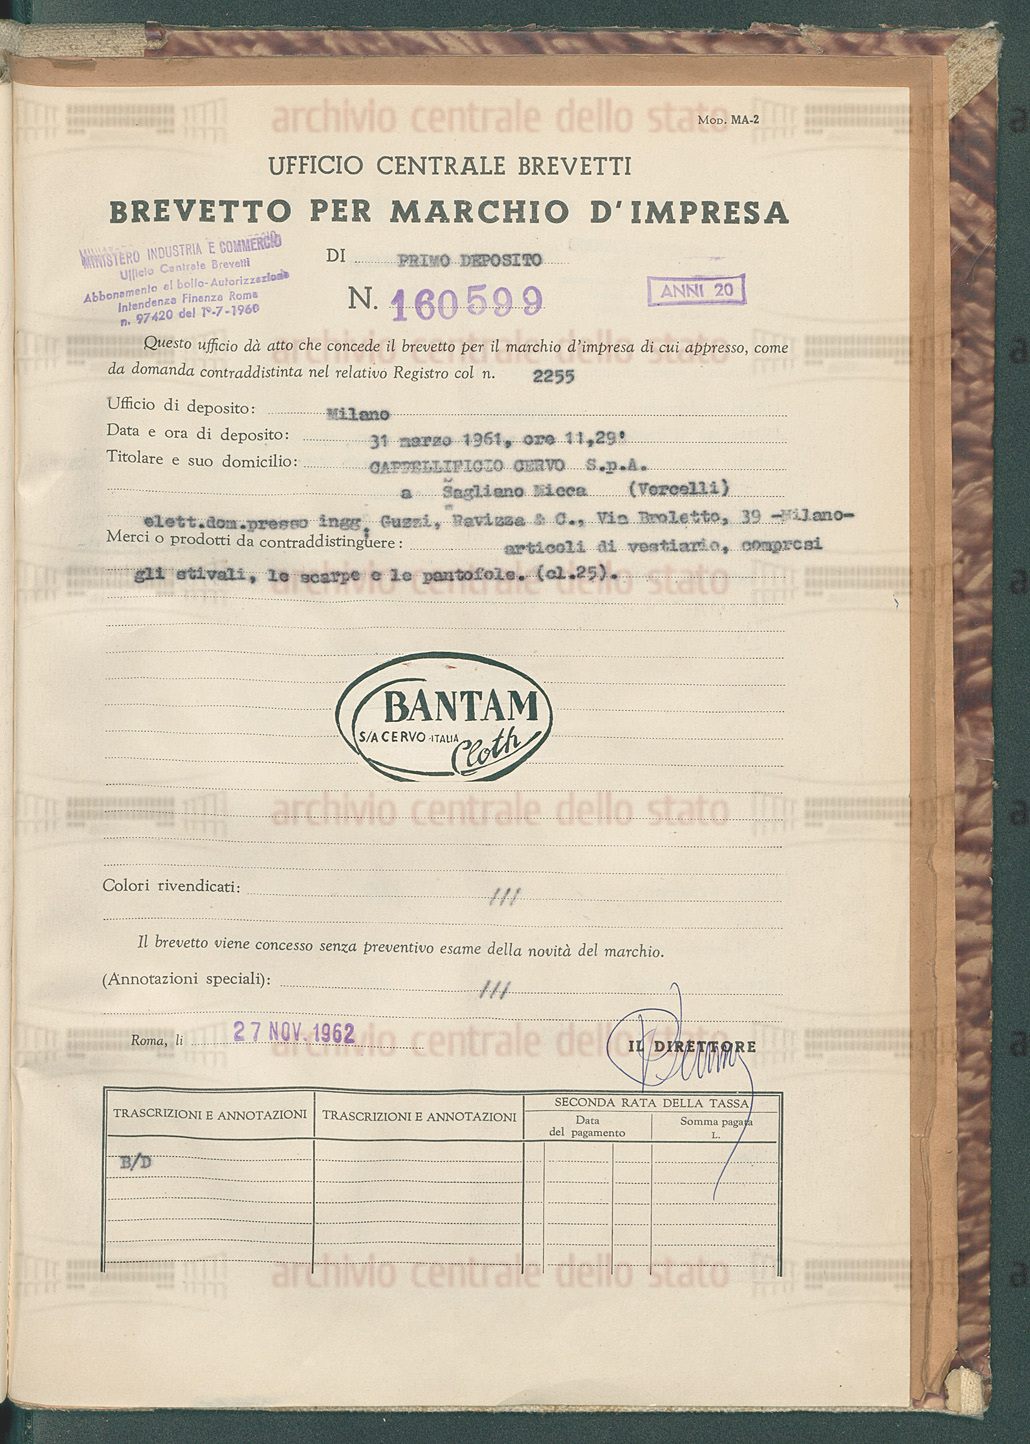 archivio centrale dello stato
Mod. MA-2
UFFICIO CENTRALE BREVETTI
BREVETTO PER MARCHIO D'IMPRESA
MINISTERO INDUSTRIA E COMMERCIO
Ufficio Centrale Brevetti
Abbonamento al bollo-Autorizzazione
Intendenza Finanza Roma
n. 97420 del 1°-7-1960
DI PRIMO DEPOSITO
N. 160599
ANNI 20
archivio centrale dello stato
Questo ufficio dà atto che concede il brevetto per il marchio d'impresa di cui appresso, come
da domanda contraddistinta nel relativo Registro col n. 2255
Ufficio di deposito: Milano
Data e ora di deposito: 31 marzo 1961, ore 11,29'
Titolare e suo domicilio: CAPPELLIFICIO CERVO S.p.A.
a Sagliano Micca (Vercelli)
elett.dom.presso ingg. Guzzi, Ravizza & C., Via Broletto, 39 -Milano-
Merci o prodotti da contraddistinguere: articoli di vestiario, compresi
gli stivali, le scarpe e le pantofole. (cl.25).
archivio centrale dello stato
BANTAM
S/A CERVO-ITALIA
Cloth
archivio centrale dello stato
Colori rivendicati: ///
Il brevetto viene concesso senza preventivo esame della novità del marchio.
(Annotazioni speciali): ///
Roma, li 27 NOV. 1962
archivio centrale dello stato
IL DIRETTORE
TRASCRIZIONI E ANNOTAZIONI
TRASCRIZIONI E ANNOTAZIONI
SECONDA RATA DELLA TASSA
Data
del pagamento
Somma pagata
L.
B/D
archivio centrale dello stato